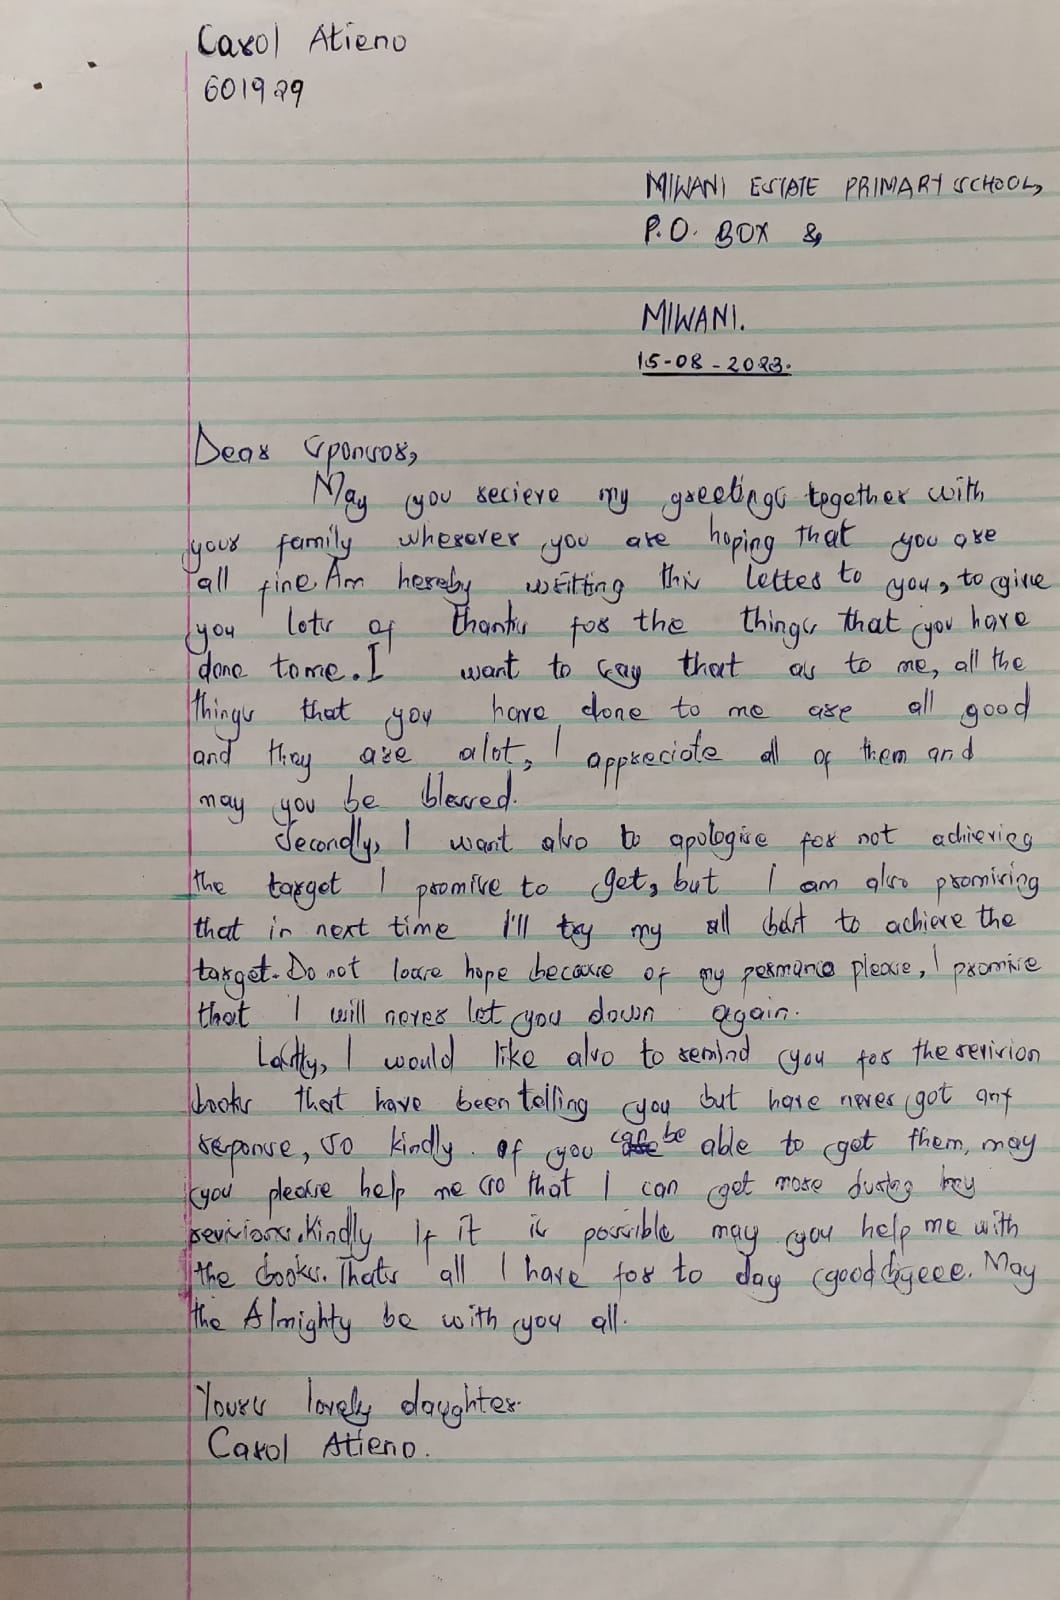 Carol Atieno
601929
MIWANI ESTATE PRIMARY SCHOOL,
P.O. BOX 8,
MIWANI.
15-08-2023.
Dear Sponsor,
May you recieve my greetings together with
your family wherever you are hoping that you are
all fine. Am hereby writting this letter to you, to give
you lots of thanks for the things that you have
done to me. I want to say that as to me, all the
things that you have done to me are all good
and they are alot, I appreciate all of them and
may you be blessed.
Secondly, I want also to apologise for not achieving
the target I promise to get, but I am also promising
that in next time I'll try my all best to achieve the
target. Do not loose hope because of my permance please, I promise
that I will never let you down again.
Lastly, I would like also to remind you for the revision
books that have been telling you but have never got any
response, so kindly. If you can be able to get them, may
you please help me so that I can get more during my
revisions. Kindly If it is possible may you help me with
the books. Thats all I have for to day goodbyeee. May
the Almighty be with you all.
Yours lovely daughter.
Carol Atieno.